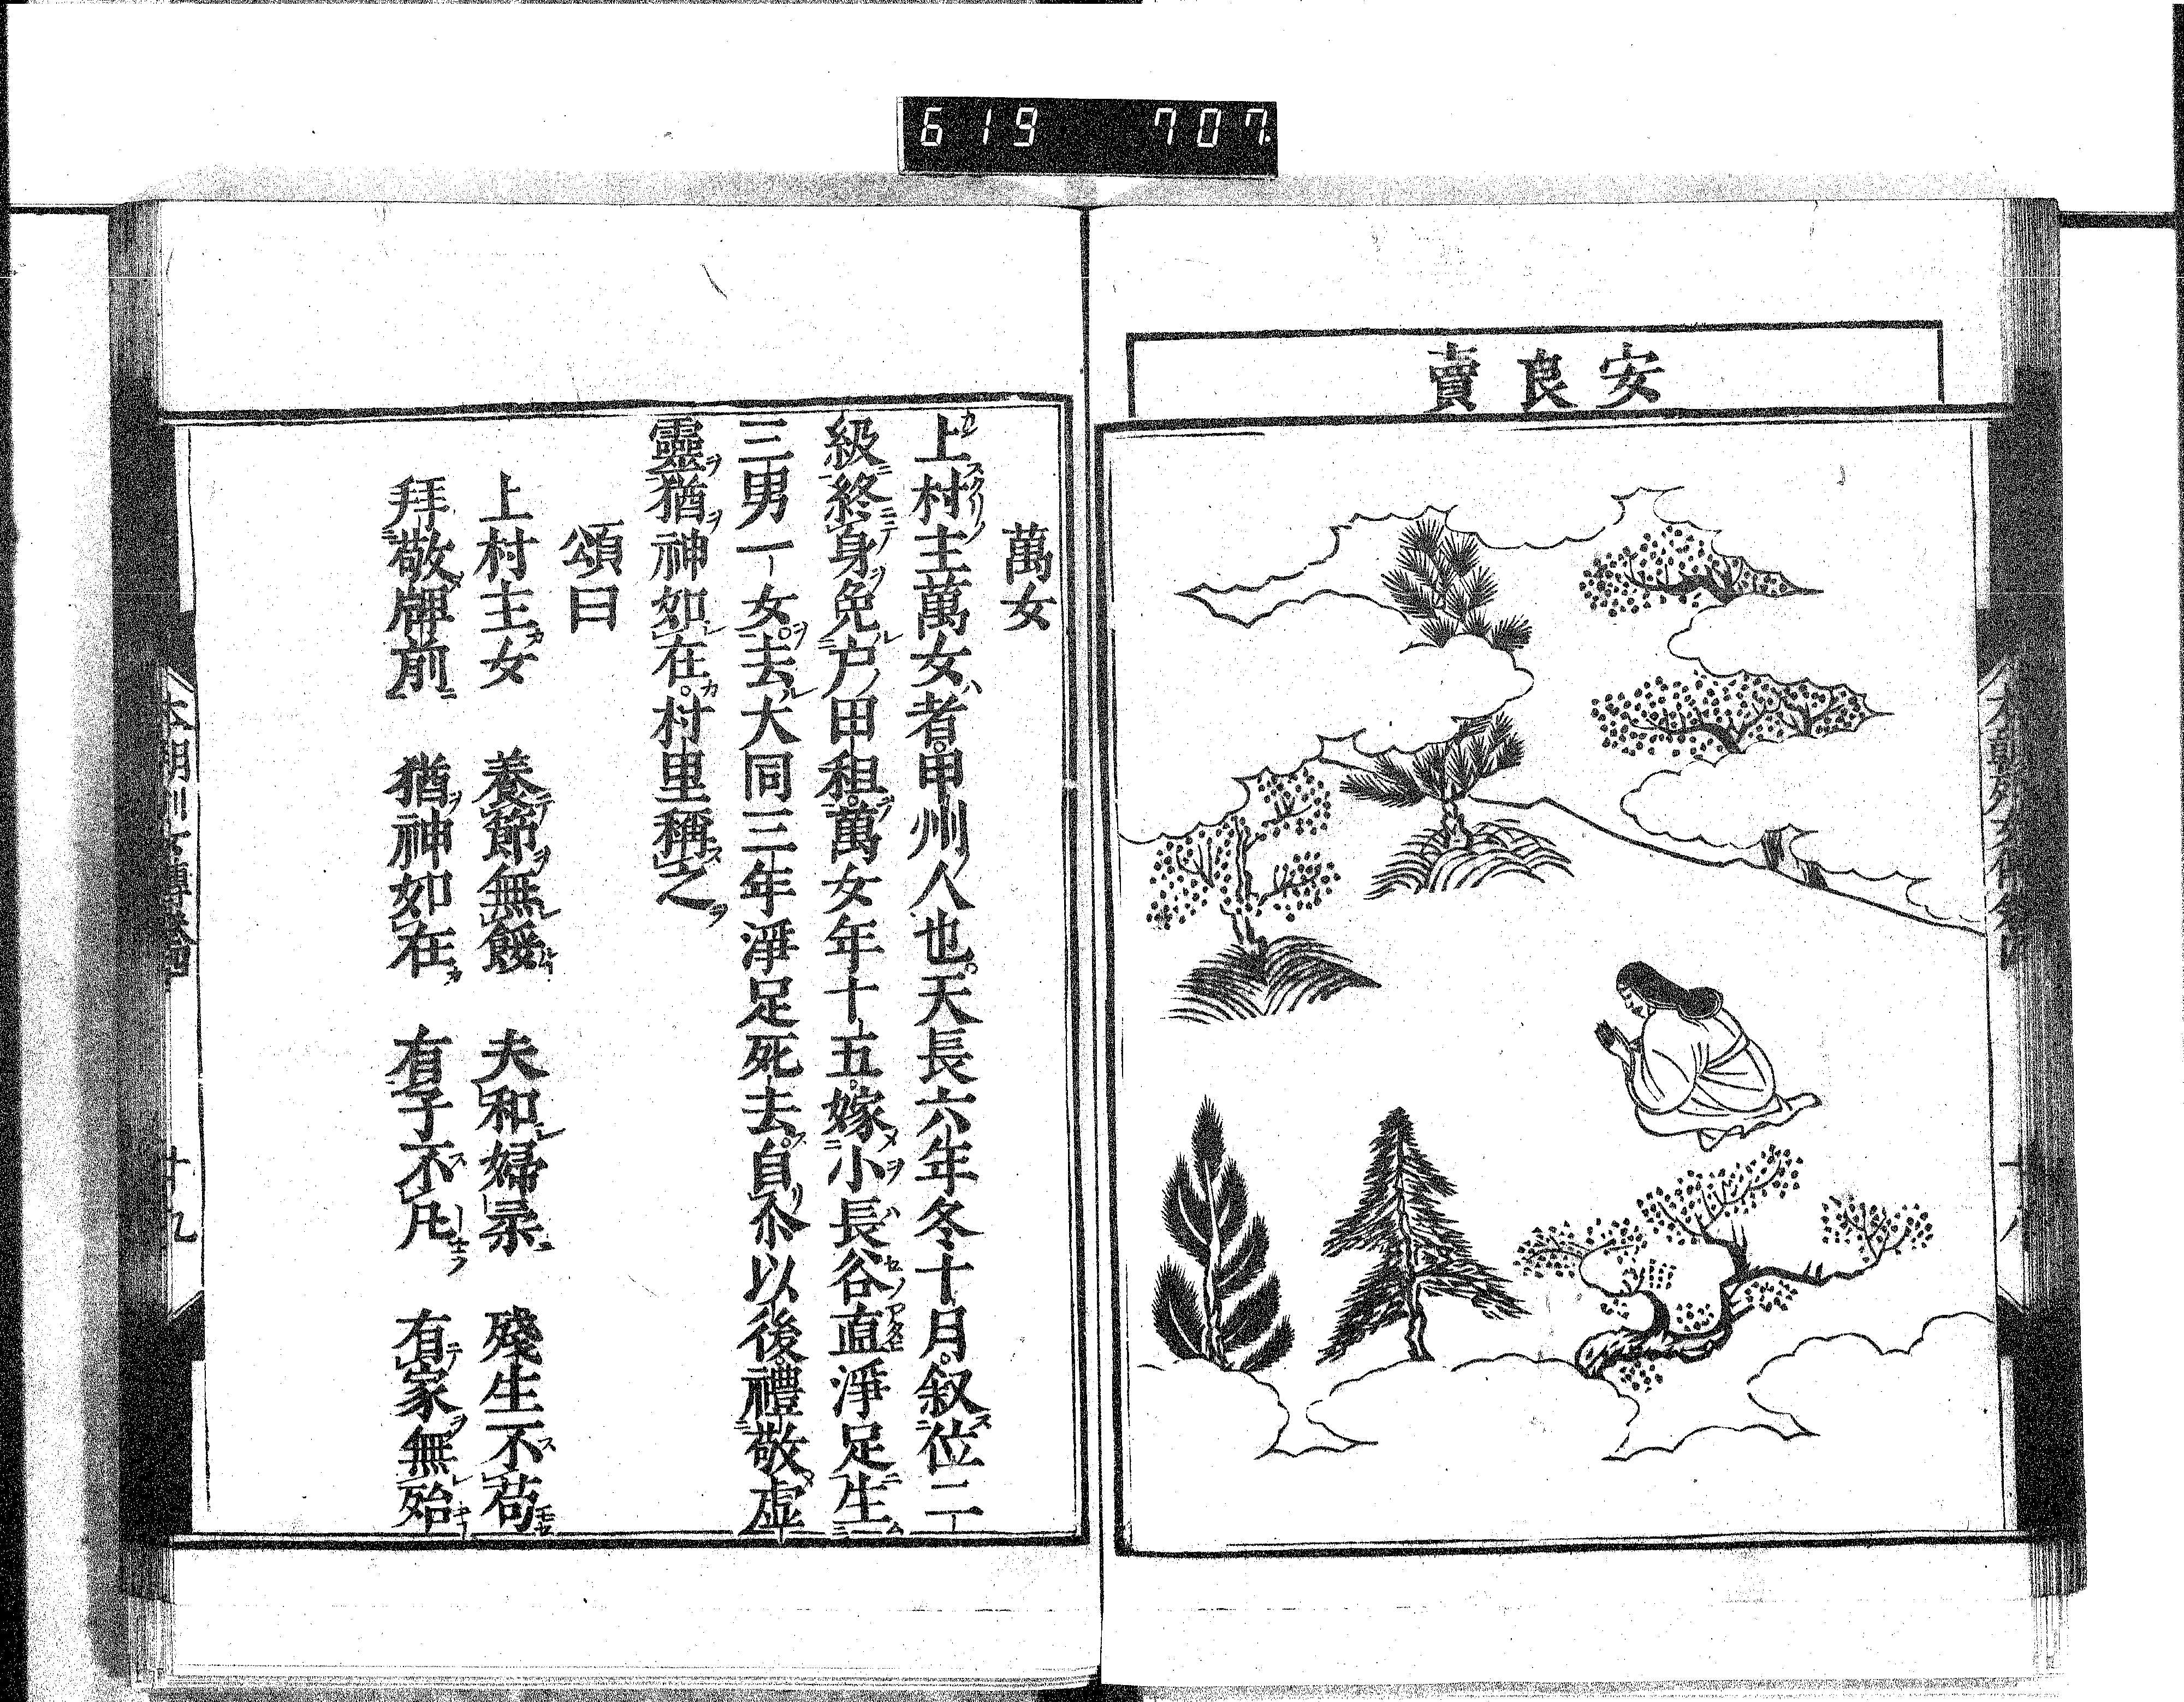 619 707
安良賣
萬女
上村主萬女者甲州人也天長六年冬十月叙位二
級終身免户田租萬女年十五嫁小長谷直淨足生
三男一女去大同三年淨足死去自尒以後禮敬虚
靈猶神如在村里稱之
頌曰
上村主女 養節無餒 夫和婦 殘生不苟
拜敬牌前 猶神如在 有子不凡 有家無殆
十九